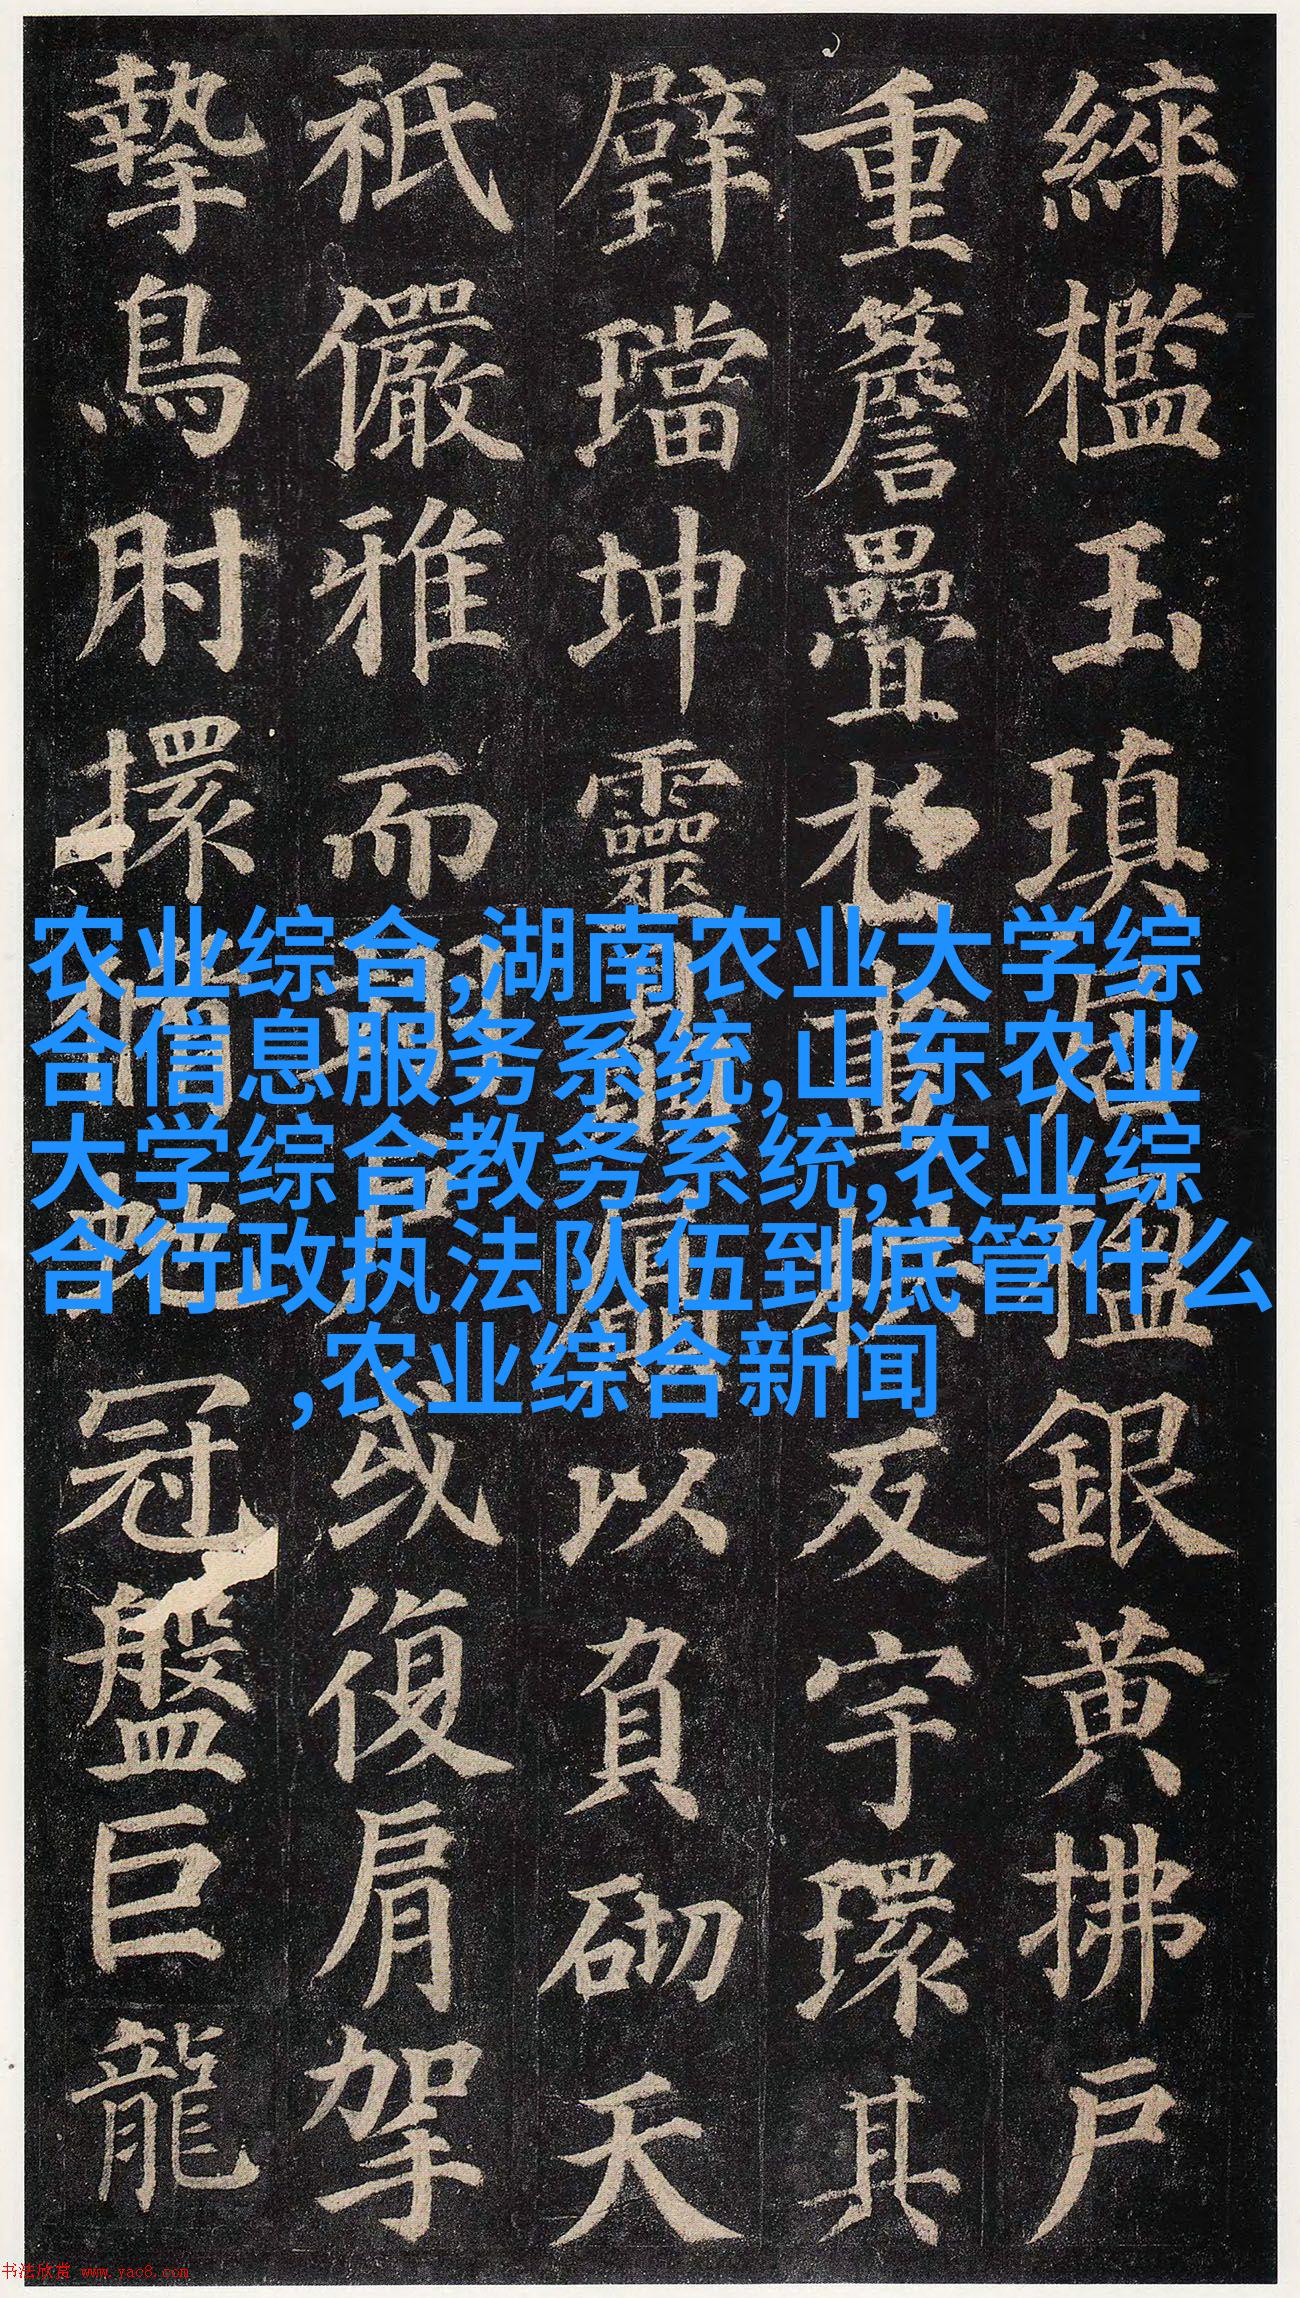 綷檻玉瑱居楹銀黄拂戶
重簷疊畫栱反宇環其
壁璫坤靈以負砌天
祇儼雅而或復肩挐
摯鳥肘擐冠盤巨龍
农业综合,湖南农业大学综
合信息服务系统,山东农业
大学综合教务系统,农业综
合行政执法队伍到底管什么
,农业综合新闻
书法欣赏 www.yac8.com